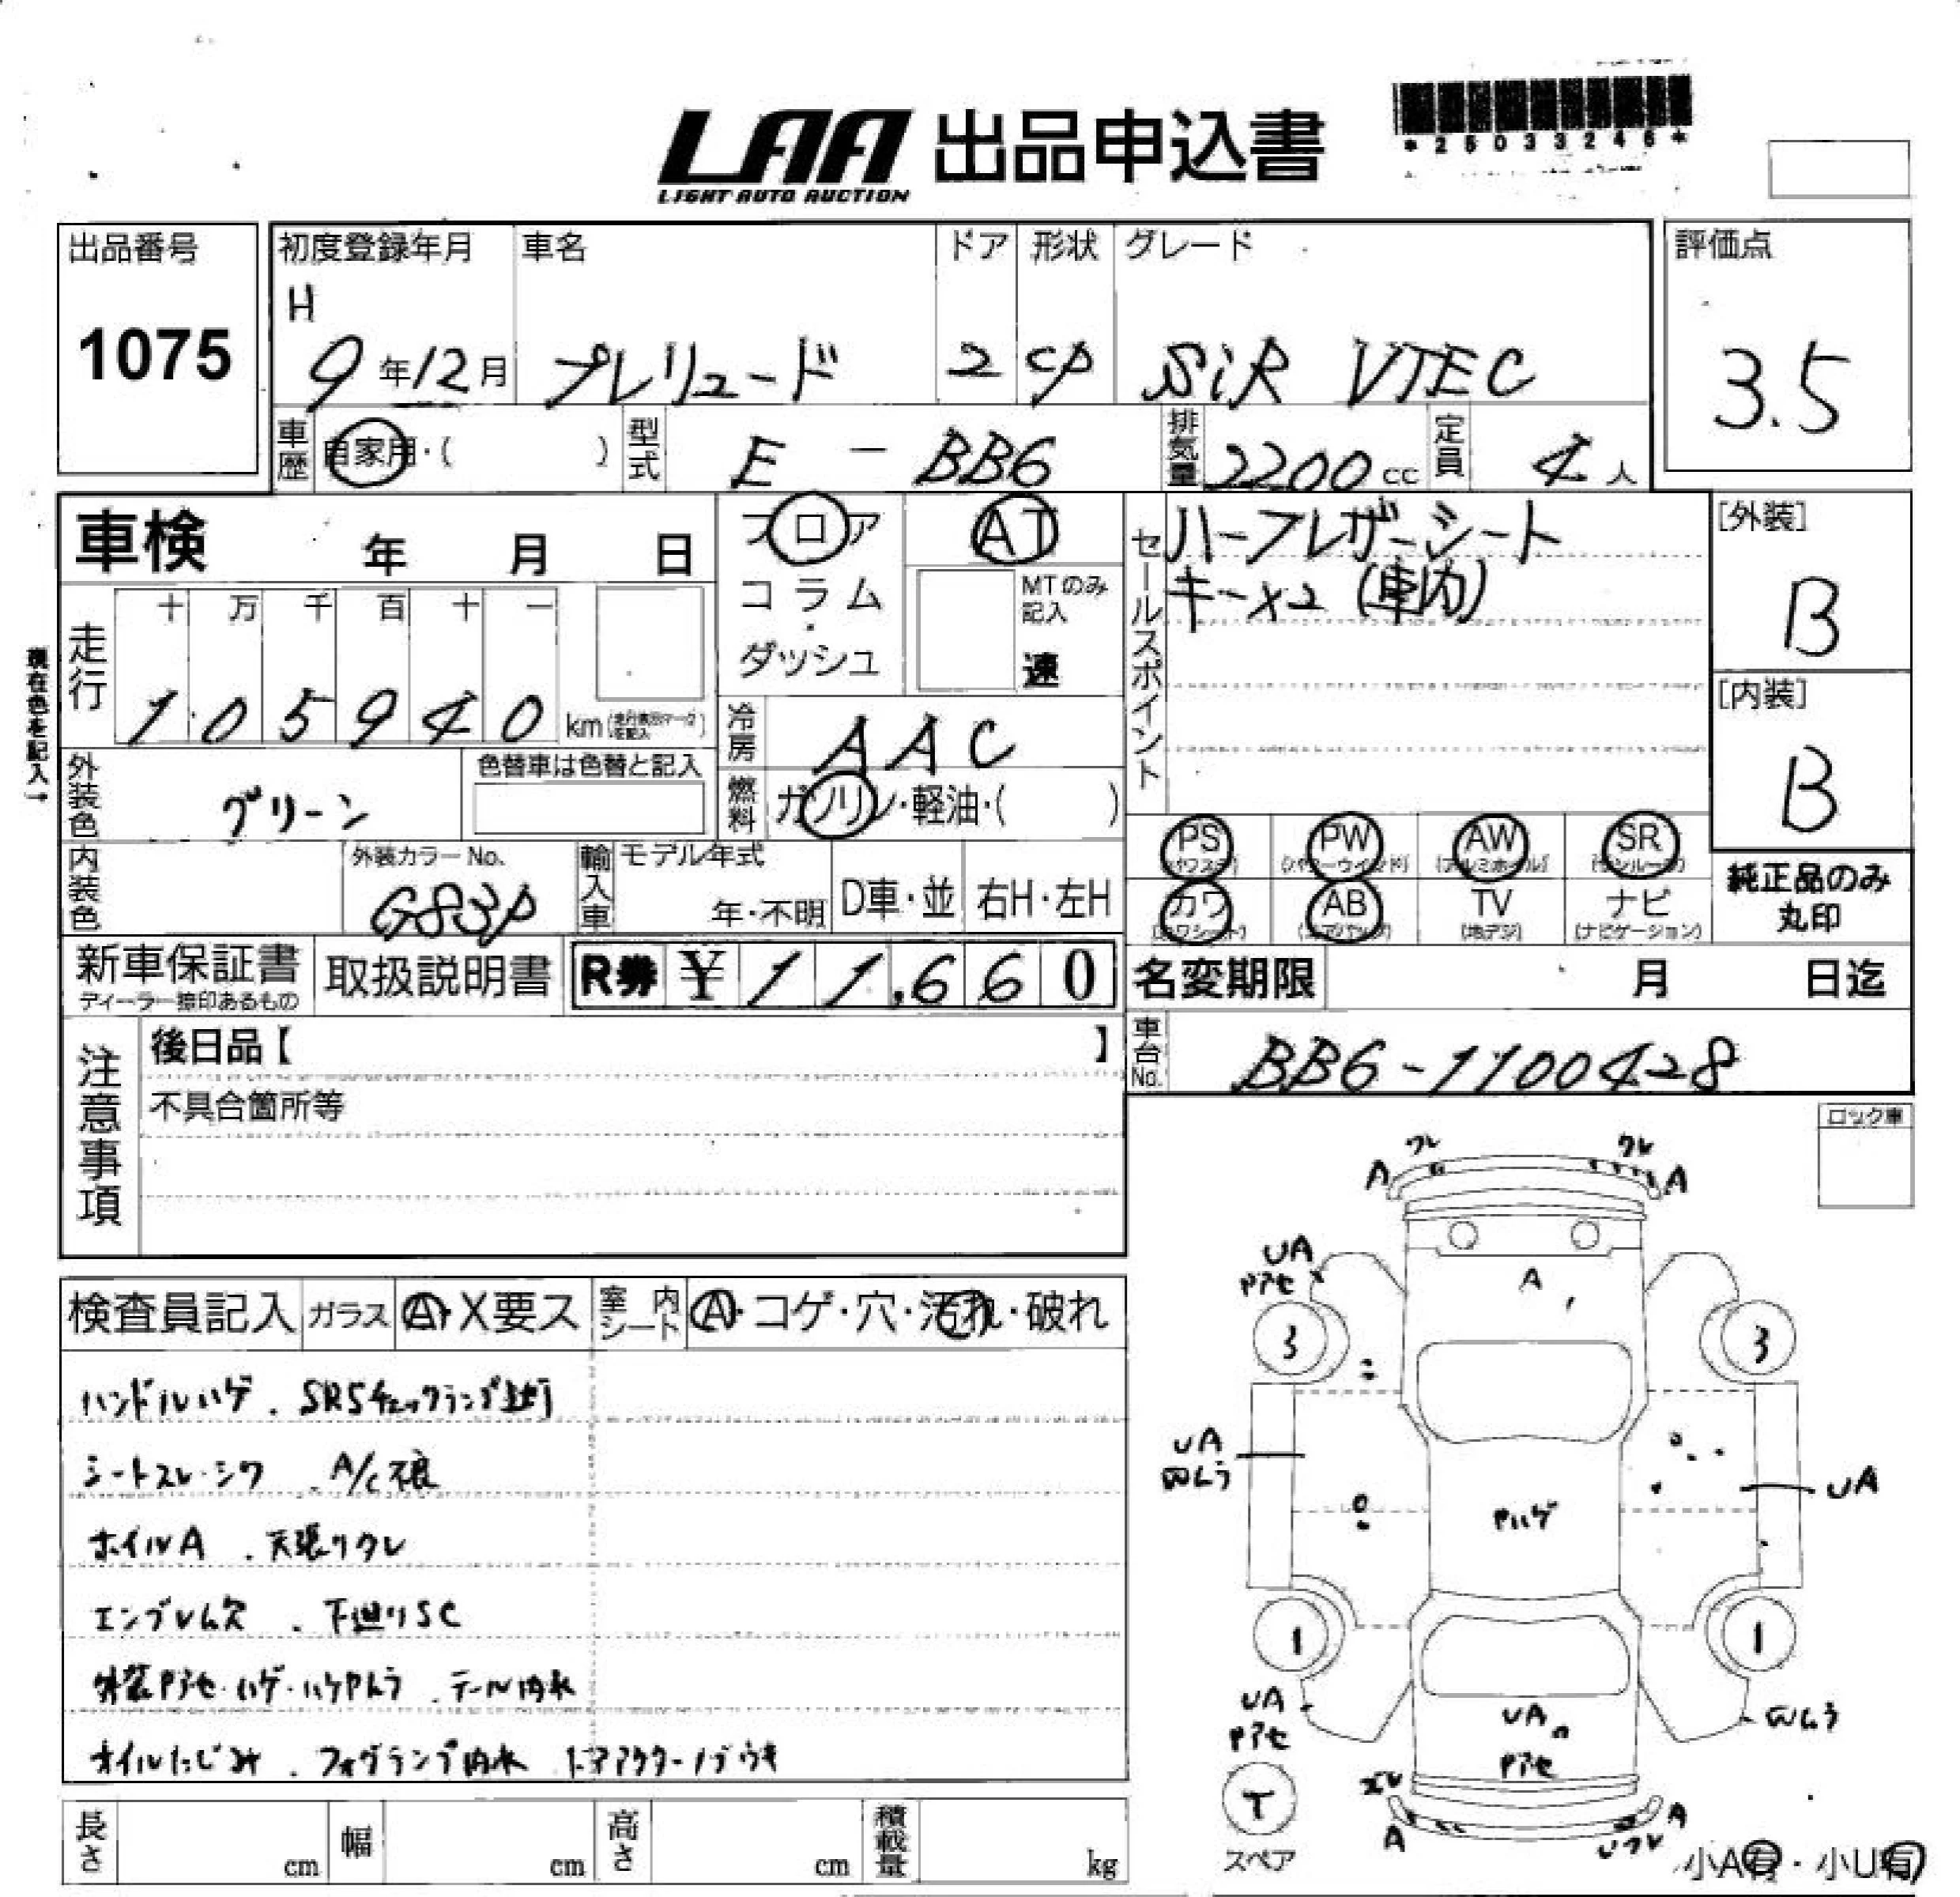 LAA 出品申込書
LIGHT AUTO AUCTION
*25033246*
出品番号 初度登録年月 車名 ドア 形状 グレード 評価点
H
1075 9年12月 プレリュード 2 CP SiR VTEC 3.5
車歴 自家用・( ) 型式 E - BB6 排気量 2200cc 定員 4人
車検 年 月 日 フロア AT セールスポイント ハーフレザーシート [外装]
コラム・ダッシュ MTのみ記入 速 キーx2 (車内) B
現在色を記入→
走行 十 万 千 百 十 一
1 0 5 9 4 0 km [内装]
冷房 AAC B
外装色 グリーン 色替車は色替と記入 燃料 ガソリン・軽油・( )
PS PW (パワーウインド) AW (アルミホイル) SR (サンルーフ)
内装色 外装カラーNo. G83P 輸入車 モデル年式 年・不明 D車・並 右H・左H
カワ AB (エアバッグ) TV (地デジ) ナビ (ナビゲーション)
純正品のみ
丸印
新車保証書 ディーラー捺印あるもの 取扱説明書 R券 ¥11,660 名変期限 月 日迄
注意事項 後日品【 】 車台No. BB6-1100428
不具合箇所等
ロック車
検査員記入 ガラス A・X要ス 室内シート A・コゲ・穴・汚れ・破れ
ハンドルハゲ . SRSチェックランプ点灯
シートスレ・シワ . A/C不良
ホイルA . 天張りタレ
エンブレム欠 . 下廻りSC
外装Pアセ・ハゲ・ハケPムラ . テール内水
オイルにじみ . フォグランプ内水 ドアアウターノブウキ
長さ cm 幅 cm 高さ cm 積載量 kg
ワレ ワレ
A A
UA
Pアセ
A
3 3
UA UA
Pハゲ
1 1
UA
Pアセ
UA
Pアセ
T
スペア
ズレ
A A
小A有・小U有